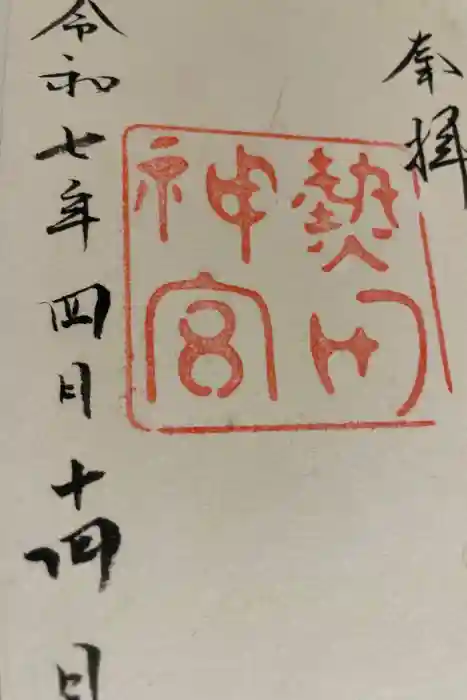 奉拝
熱田
神宮
令和七年四月十四日